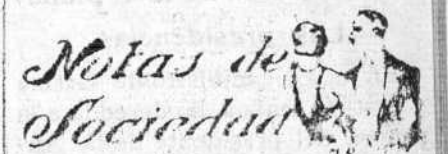 Notas de
Sociedad